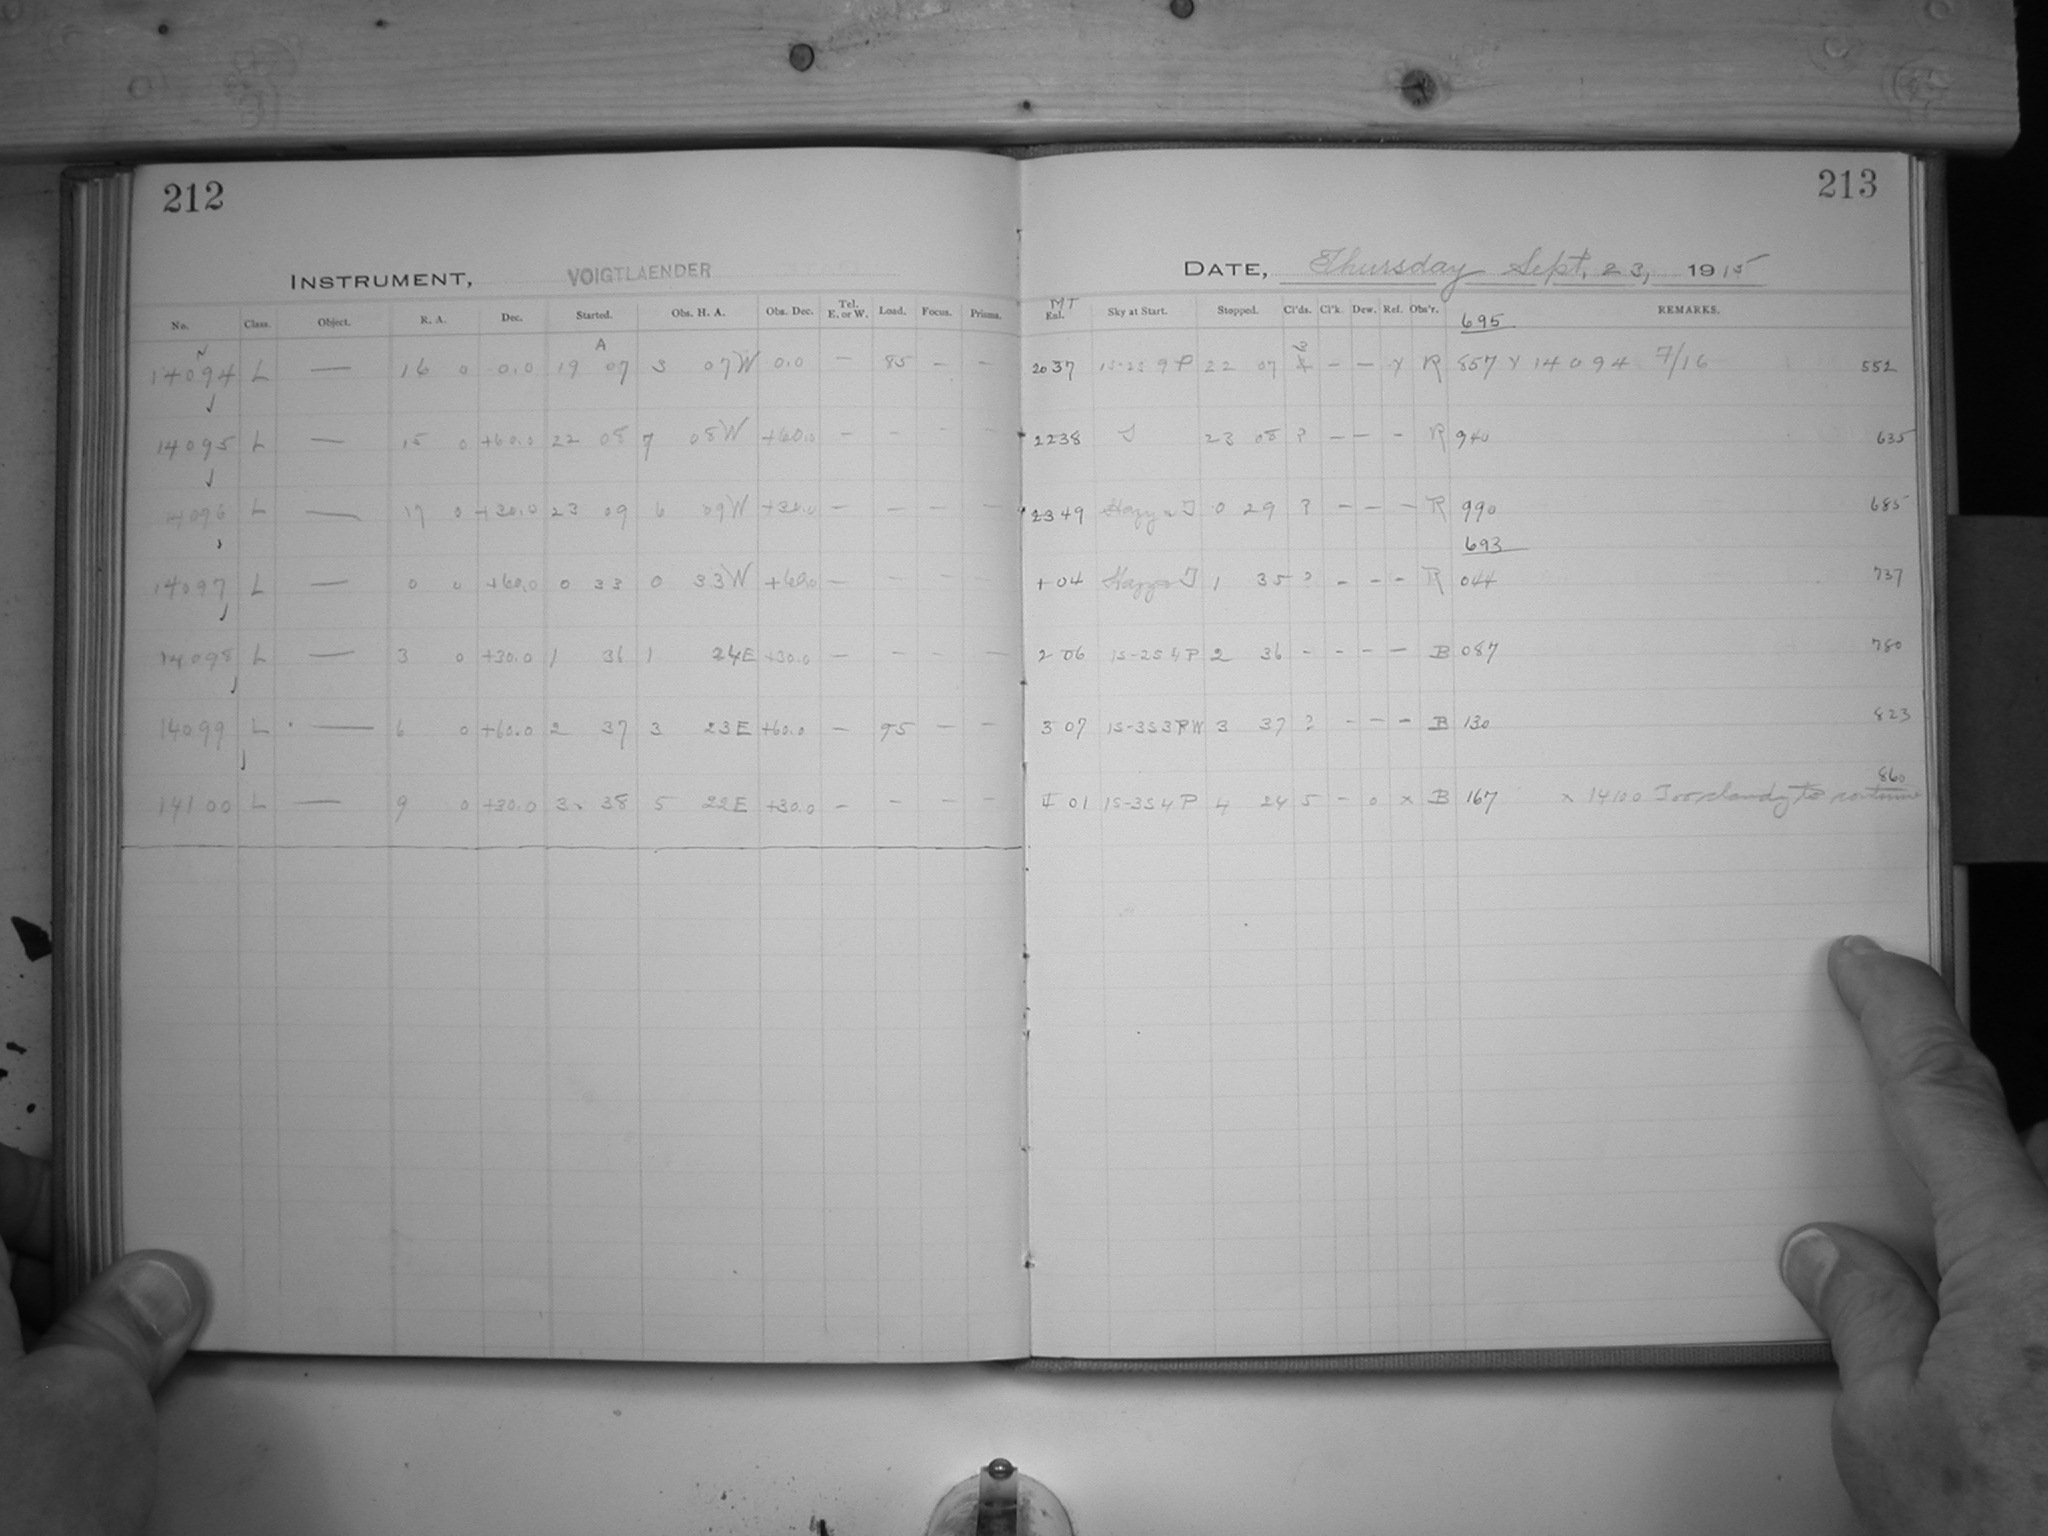 212
INSTRUMENT, VOIGTLAENDER
No. Class. Object. R. A. Dec. Started. Obs. H. A. Obs. Dec. Tel. E. or W. Load. Focus. Prisms.
A
14094 L — 16 0 0.0 19 07 3 07W 0.0 — 85 - -
14095 L — 15 0 +60.0 22 08 7 08W +60.0 - - - -
14096 L — 17 0 +30.0 23 09 6 09W +30.0 - - - -
14097 L — 0 0 +60.0 0 33 0 33W +60.0 - - - -
14098 L — 3 0 +30.0 1 36 1 24E +30.0 - - - -
14099 L — 6 0 +60.0 2 37 3 23E +60.0 - 95 - -
14100 L — 9 0 +30.0 3 38 5 22E +30.0 - - - -
213
DATE, Thursday Sept. 23, 1915
MT
Exl. Sky at Start. Stopped. Cl'ds. Cl'k. Dew. Ref. Obs'r. REMARKS.
695
2037 1S-2S 9 P 22 07 - - Y R 857 Y 14094 7/16 552
2238 J 23 08 ? - - - R 940 635
2349 0 29 ? - - - R 990 685
693
1 04 1 35 ? - - - R 044 737
2 06 1S-2S 4 P 2 36 - - - - B 087 780
3 07 1S-3S 3 P W 3 37 ? - - - B 130 823
4 01 1S-3S 4 P 4 24 5 - 0 x B 167 x 14100 Too cloudy to continue 860